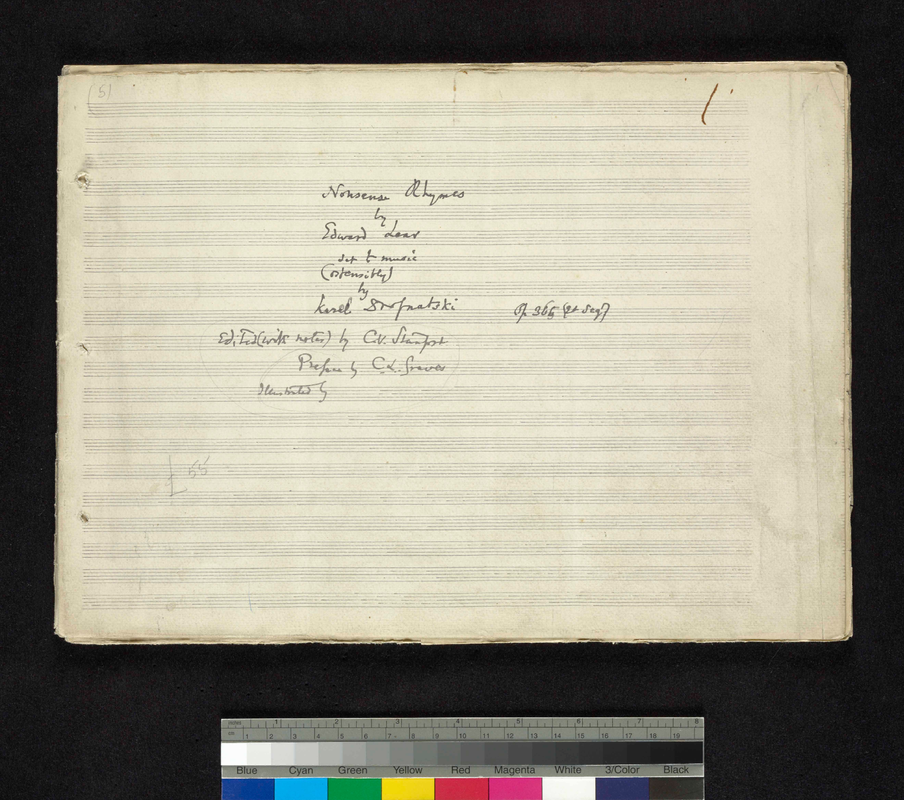 51
Nonsense Rhymes
by
Edward Lear
set to music
(ostensibly)
by
Karel Drofnatski Op. 365 (et seq)
Edited (with notes) by C.V. Stanford
Preface by C.L. Graves
Illustrated by
£55
mm 1 2 3 4 5 6 7 8
cm 1 2 3 4 5 6 7 8 9 10 11 12 13 14 15 16 17 18 19
Blue Cyan Green Yellow Red Magenta White 3/Color Black